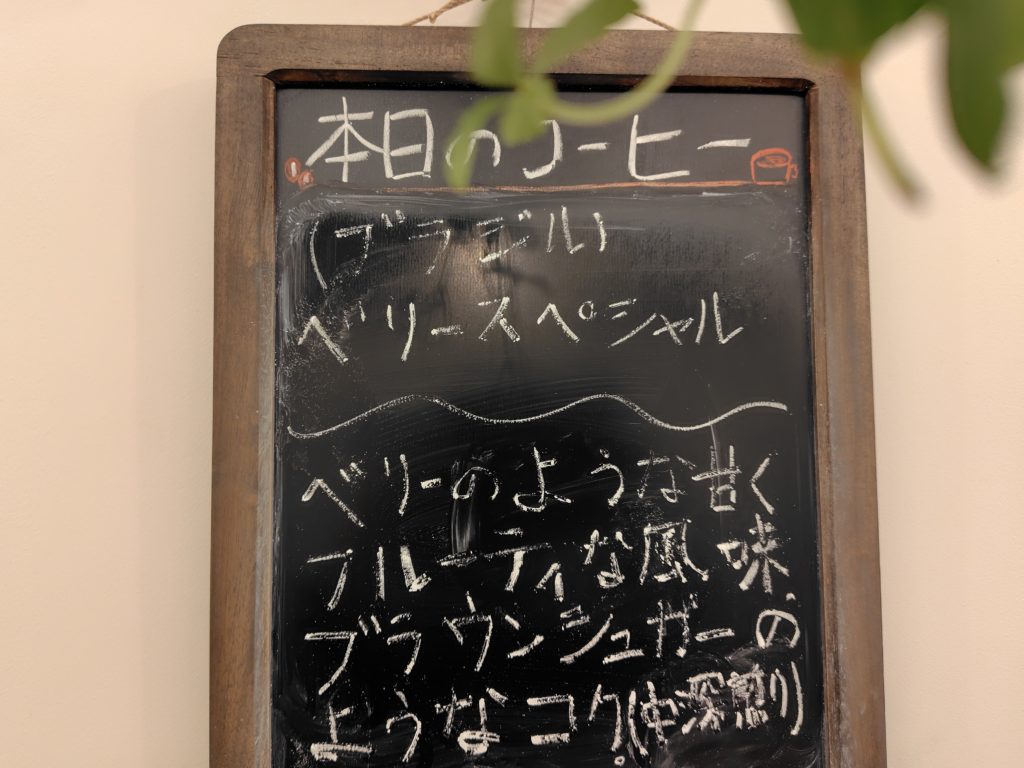 本日のコーヒー
(ブラジル)
ベリースペシャル
ベリーのような甘く
フルーティな風味、
ブラウンシュガーの
ようなコク。(中深煎り)